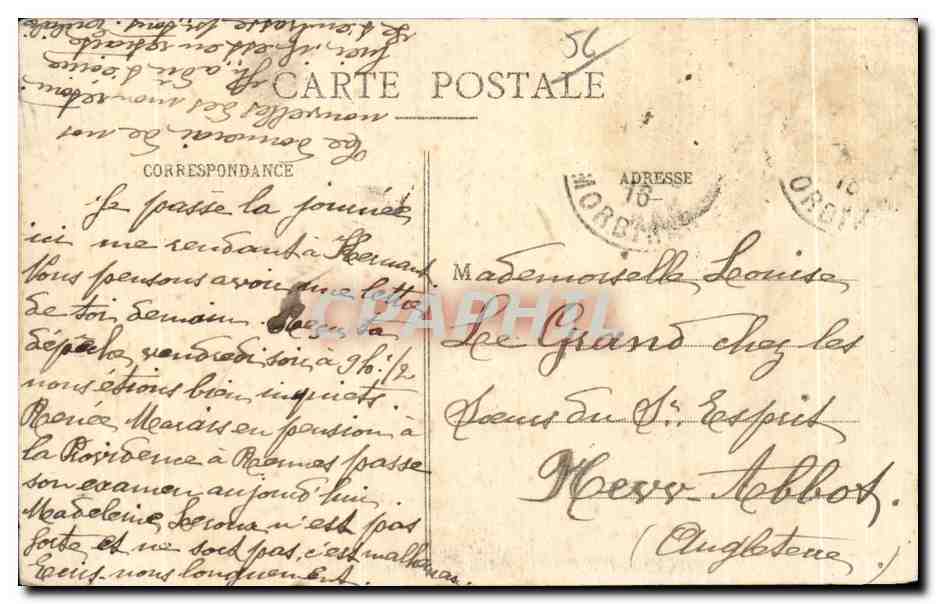 56
CARTE POSTALE
CORRESPONDANCE
ADRESSE
16
MORBIHAN
16
ORBIH
Je passe la journée
ici me rendant à
Nous pensons avoir une lettre
de toi demain. Reçu ta
dépêche vendredi soir à 9h. 1/2
nous étions bien inquiets.
Renée Marais en pension à
la Providence à Rennes passe
son examen aujourd'hui.
Madeleine n'est pas
forte et ne sort pas, c'est malheureux.
Ecris-nous longuement.
Je donnerai de nos
nouvelles dès mon retour.
Mademoiselle Louise
Le Grand chez les
Soeurs du St. Esprit
Newx-Abbot.
(Angleterre)
CPAPHIL